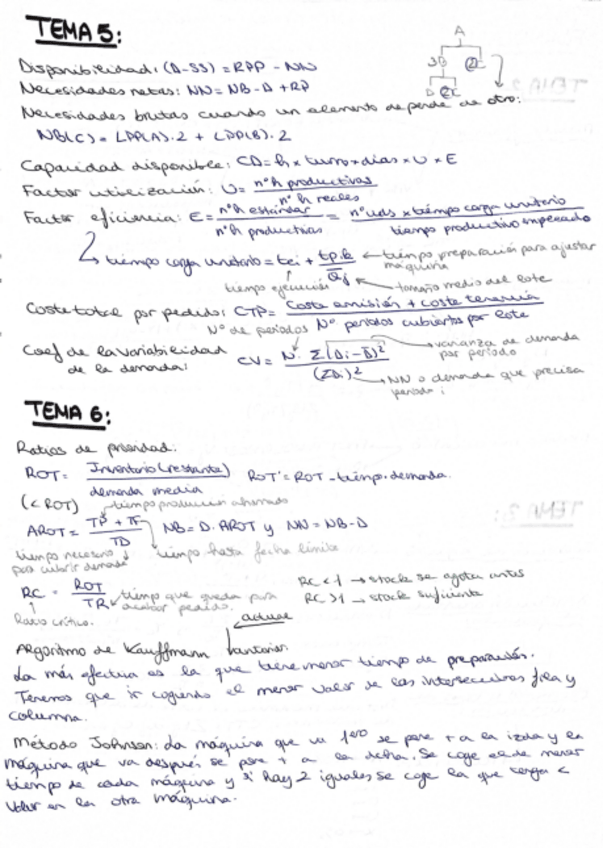 TEMA 5:
A
3B 2C
D 2C
Disponibilidad: (D-SS) = RPP - NN
Necesidades netas: NN = NB - D + RP
Necesidades brutas cuando un elemento depende de otro:
NB(C) = LPP(A)·2 + LPP(B)·2
Capacidad disponible: CD = h x turno x días x U x E
Factor utilización: U = nº h productivas / nº h reales
Factor eficiencia: E = nº h estándar / nº h productivas = nº uds x tiempo carga unitario / tiempo productivo empleado
tiempo carga unitario = tei + tp.k / Qj ← tiempo preparación para ajustar máquina
tiempo ejecución tamaño medio del lote
Coste total por pedido: CTP = Coste emisión + coste tenencia / Nº periodos cubiertos por lote
Nº de periodos
Coef de la variabilidad de la demanda: CV = N · Σ(Di - D̄)² / (ΣDi)² → varianza de demanda por periodo
→ NN o demanda que precisa periodo i
TEMA 6:
Ratios de prioridad:
ROT = Inventario (restante) / demanda media ROT' = ROT - tiempo · demanda.
(< ROT) tiempo producción ahorrado
AROT = TP + TF / TD NB = D · AROT y NN = NB - D
tiempo necesario para cubrir demanda tiempo hasta fecha límite
RC = ROT / TR tiempo que queda para acabar pedido. RC < 1 → stock se agota antes
RC > 1 → stock suficiente
Ratio crítico.
actual
Algoritmo de Kauffmann anterior.
La más efectiva es la que tiene menor tiempo de preparación.
Tenemos que ir cogiendo el menor valor de las intersecciones fila y
columna.
Método Johnson: La máquina que va 1ero se pone + a la izda y la
máquina que va después se pone + a la dcha. Se coge el de menor
tiempo de cada máquina y si hay 2 iguales se coge la que tenga <
valor en la otra máquina.